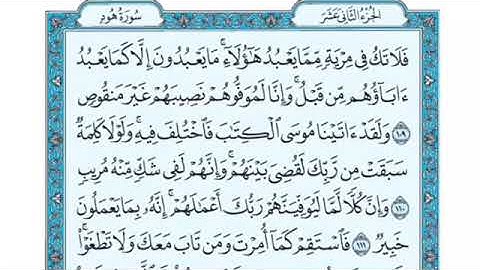 الجزء الثاني عشر
سورة هود
فَلَا تَكُ فِي مِرْيَةٍ مِّمَّا يَعْبُدُ هَٰٓؤُلَآءِ ۚ مَا يَعْبُدُونَ إِلَّا كَمَا يَعْبُدُ
ءَابَآؤُهُم مِّن قَبْلُ ۚ وَإِنَّا لَمُوَفُّوهُمْ نَصِيبَهُمْ غَيْرَ مَنقُوصٍ
١٠٩ وَلَقَدْ ءَاتَيْنَا مُوسَى ٱلْكِتَٰبَ فَٱخْتُلِفَ فِيهِ ۚ وَلَوْلَا كَلِمَةٌ
سَبَقَتْ مِن رَّبِّكَ لَقُضِيَ بَيْنَهُمْ ۚ وَإِنَّهُمْ لَفِي شَكٍّ مِّنْهُ مُرِيبٍ
١١٠ وَإِنَّ كُلًّا لَّمَّا لَيُوَفِّيَنَّهُمْ رَبُّكَ أَعْمَٰلَهُمْ ۚ إِنَّهُۥ بِمَا يَعْمَلُونَ
خَبِيرٌ ١١١ فَٱسْتَقِمْ كَمَآ أُمِرْتَ وَمَن تَابَ مَعَكَ وَلَا تَطْغَوْا۟ ۚ